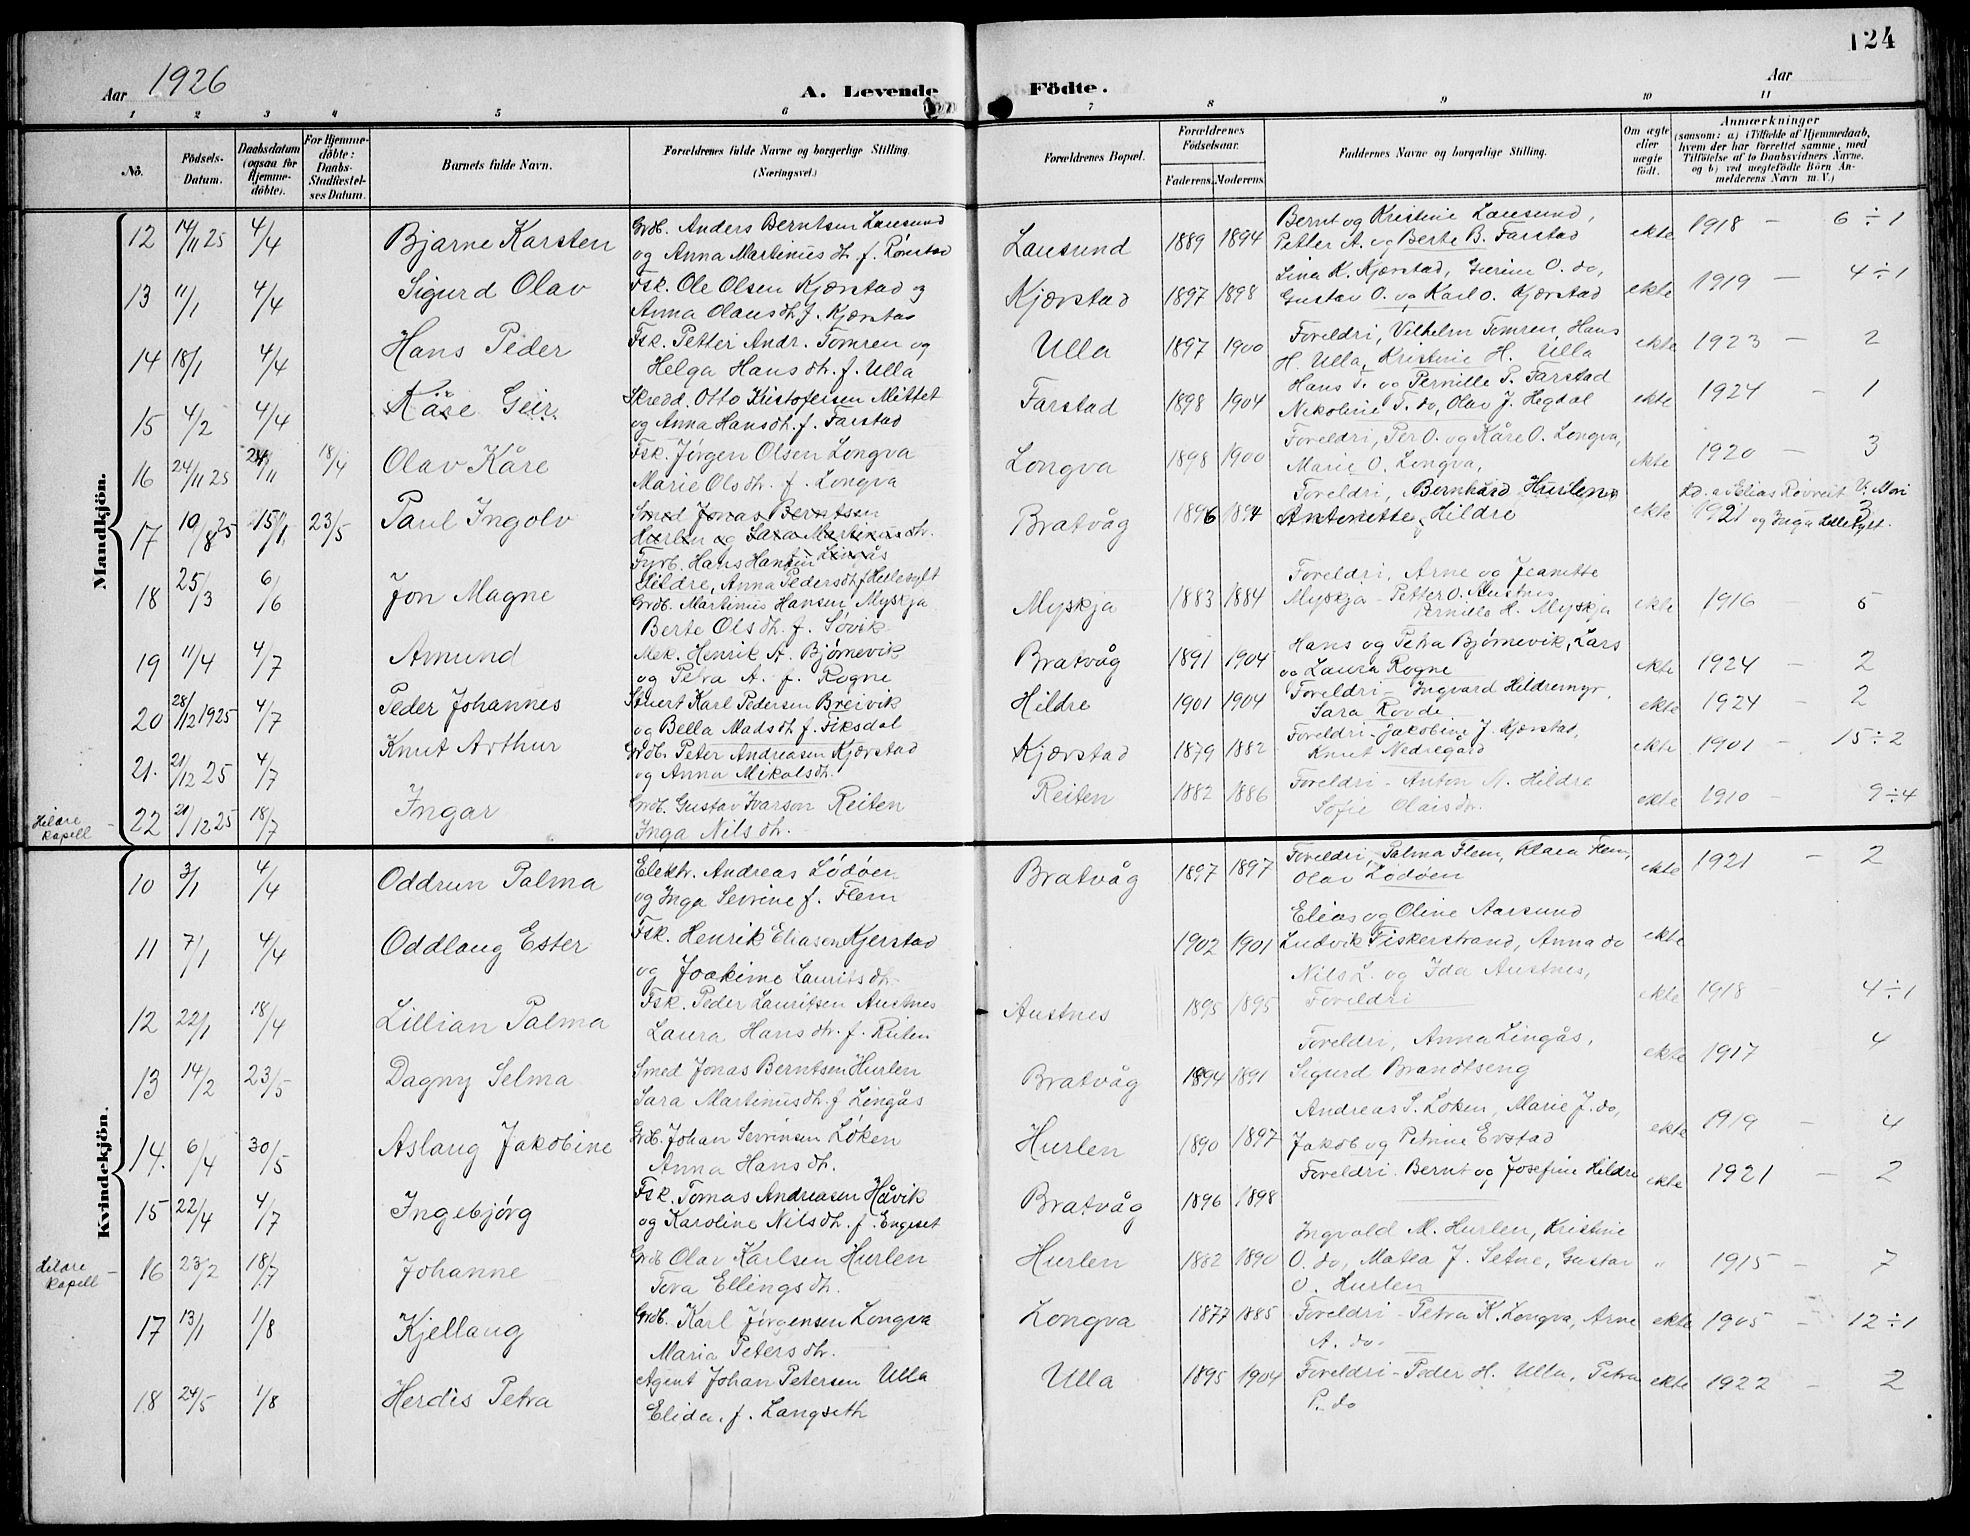 124
Aar 1926
A. Levende Födte.
Aar
1 2 3 4 5 6 7 8 9 10 11
No.
Födsels-Datum.
Daabsdatum (ogsaa for Hjemme-döbte).
For Hjemme-döbte: Daabs-Stadfæstel-ses Datum.
Barnets fulde Navn.
Forældrenes fulde Navne og borgerlige Stilling
(Næringsvei.)
Forældrenes Bopæl.
Forældrenes Födselsaar.
Faderens. Moderens.
Faddernes Navne og borgerlige Stilling.
Om ægte eller uægte födt.
Anmærkninger
(saasom: a) i Tilfælde af Hjemmedaab,
hvem der har forrettet samme, med
Tilföielse af to Daabsvidners Navne,
og b) ved uægtefödte Börn An-
melderens Navn m. V.)
Mandkjön.
12 14/11 25 4/4 Bjarne Karsten
Grdb. Anders Berntsen Lausund
og Anna Martinius dtr. f. Rönstad
Lausund 1889 1894
Bernt og Kristine Lausund,
Petter A. og Berte B. Farstad
ekte 1918 — 6 ÷ 1
13 11/1 4/4 Sigurd Olav
Fsk. Ole Olsen Kjærstad og
Anna Olausdtr. f. Kjærstad
Kjærstad 1897 1898
Lina K. Kjærstad, Gurine O. do,
Gustav O. og Karl O. Kjærstad
ekte 1919 — 4 ÷ 1
14 18/1 4/4 Hans Peder
Fsk. Petter Andr. Tomren og
Helga Hansdtr. f. Ulla
Ulla 1897 1900
Foreldri, Vilhelm Tomren, Hans
H. Ulla, Kristine H. Ulla
ekte 1923 — 2
15 4/2 4/4 Kåre Geir.
Skredd. Otto Kristofersen Mittet
og Anna Hansdtr. f. Farstad
Farstad 1898 1904
Hans T. og Pernille P. Farstad
Nikoline T. do, Olav J. Hegdal
ekte 1924 — 1
16 24/11 25 24/11 18/4 Olav Kåre
Fsk. Jørgen Olsen Longva
Marie Olsdtr. f. Longva
Longva 1898 1900
Foreldri, Per O. og Kåre O. Longva,
Marie O. Longva,
ekte 1920 — 3
17 10/8 25 15/1 23/5 Paul Ingolv
Smed Jonas Berntsen
Hurlen og Sara Martinusdtr.
f. Lingås
Fyrb. Hans Hansen
Hildre, Anna Pedersdtr f Hellesylt
Bratvåg 1896 1894
Foreldri, Bernhard Hurlen,
Antonette Hildre
ekte 1921 3
og Inga Hellesylt.
18 25/3 6/6 Jon Magne
Grdb. Martinus Hansen Myskja
Berte Olsdtr. f. Søvik
Myskja 1883 1884
Foreldri, Arne og Jeanette
Myskja - Petter O. Austnes
Pernille H. Myskja
ekte 1916 5
19 11/4 4/7 Amund
Mek. Henrik A. Bjørnevik
og Petra A. f. Rogne
Bratvåg 1891 1904
Hans og Petra Bjørnevik, Lars
og Laura Rogne
ekte 1924 — 2
20 28/12 1925 4/7 Peder Johannes
Stuert Karl Pedersen Breivik
og Bella Madsdtr. f. Fiksdal
Hildre 1901 1904
Foreldri - Ingvard Hildremyr,
Sara Rovde
ekte 1924 — 2
21. 21/12 25 4/7 Knut Arthur
Grdb. Peter Andreasen Kjærstad
og Anna Mikalsdtr.
Kjærstad 1879 1882
Foreldri - Jakobine J. Kjærstad,
Knut Nedregård
ekte 1901 — 15 ÷ 2
Hildre kapell —
22 21/12 25 18/7 Ingar
Grdb. Gustav Ivarson Reiten
Inga Nilsdtr.
Reiten 1882 1886
Foreldri - Anton N. Hildre
Sofie Olaisdtr
ekte 1910 — 9 ÷ 4
Kvindekjön.
10 3/1 4/4 Oddrun Palma
Elektr. Andreas Lödöen
og Inga Sevrine f. Flem
Bratvåg 1897 1897
Foreldri, Palma Flem, Klara Flem,
Olav Lödöen
ekte 1921 — 2
11 7/1 4/4 Oddlaug Ester
Fsk. Henrik Eliasen Kjerstad
og Joakime Lauritsdtr.
1902 1901
Elias og Oline Aarsund
Ludvik Fiskerstrand, Anna do
ekte
12 22/1 18/4 Lillian Palma
Fsk. Peder Lauritsen Austnes
Laura Hansdtr. f. Reiten
Austnes 1895 1895
Nils L. og Ida Austnes,
Foreldri
ekte 1918 — 4 ÷ 1
13 14/2 23/5 Dagny Selma
Smed Jonas Berntsen Hurlen
Sara Martinusdtr. f Lingås
Bratvåg 1894 1891
Foreldri, Anna Lingås,
Sigurd Brandtseng
ekte 1917 4
14. 6/4 30/5 Aslaug Jakobine
Grdb. Johan Sevrinsen Løken
Anna Hansdtr.
Hurlen 1890 1897
Andreas S. Løken, Marie J. do,
Jakob og Petrine Evstad
ekte 1919 — 4
15 22/4 4/7 Ingebjørg
Fsk. Tomas Andreasen Håvik
og Karoline Nilsdtr. f. Engeset
Bratvåg 1896 1898
Foreldri. Bernt og Josefine Hildre
ekte 1921 — 2
Hildre kapell —
16 23/2 18/7 Johanne
Grdb Olav Karlsen Hurlen
Tora Ellingsdtr.
Hurlen 1882 1890
Ingvald M. Hurlen, Kristine
O. do, Matea J. Setne, Gustav
O. Hurlen
" 1915 — 7
17 13/1 1/8 Kjellaug
Grdb. Karl Jörgensen Longva
Maria Petersdtr.
Longva 1877 1885
Foreldri - Petra K. Longva, Arne
A. do.
ekte 1905 — 12 ÷ 1
18 24/5 1/8 Herdis Petra
Agent Johan Petersen Ulla
Elida. f. Langseth
Ulla 1895 1904
Foreldri - Peder H. Ulla, Petra
P. do
ekte 1922 — 2